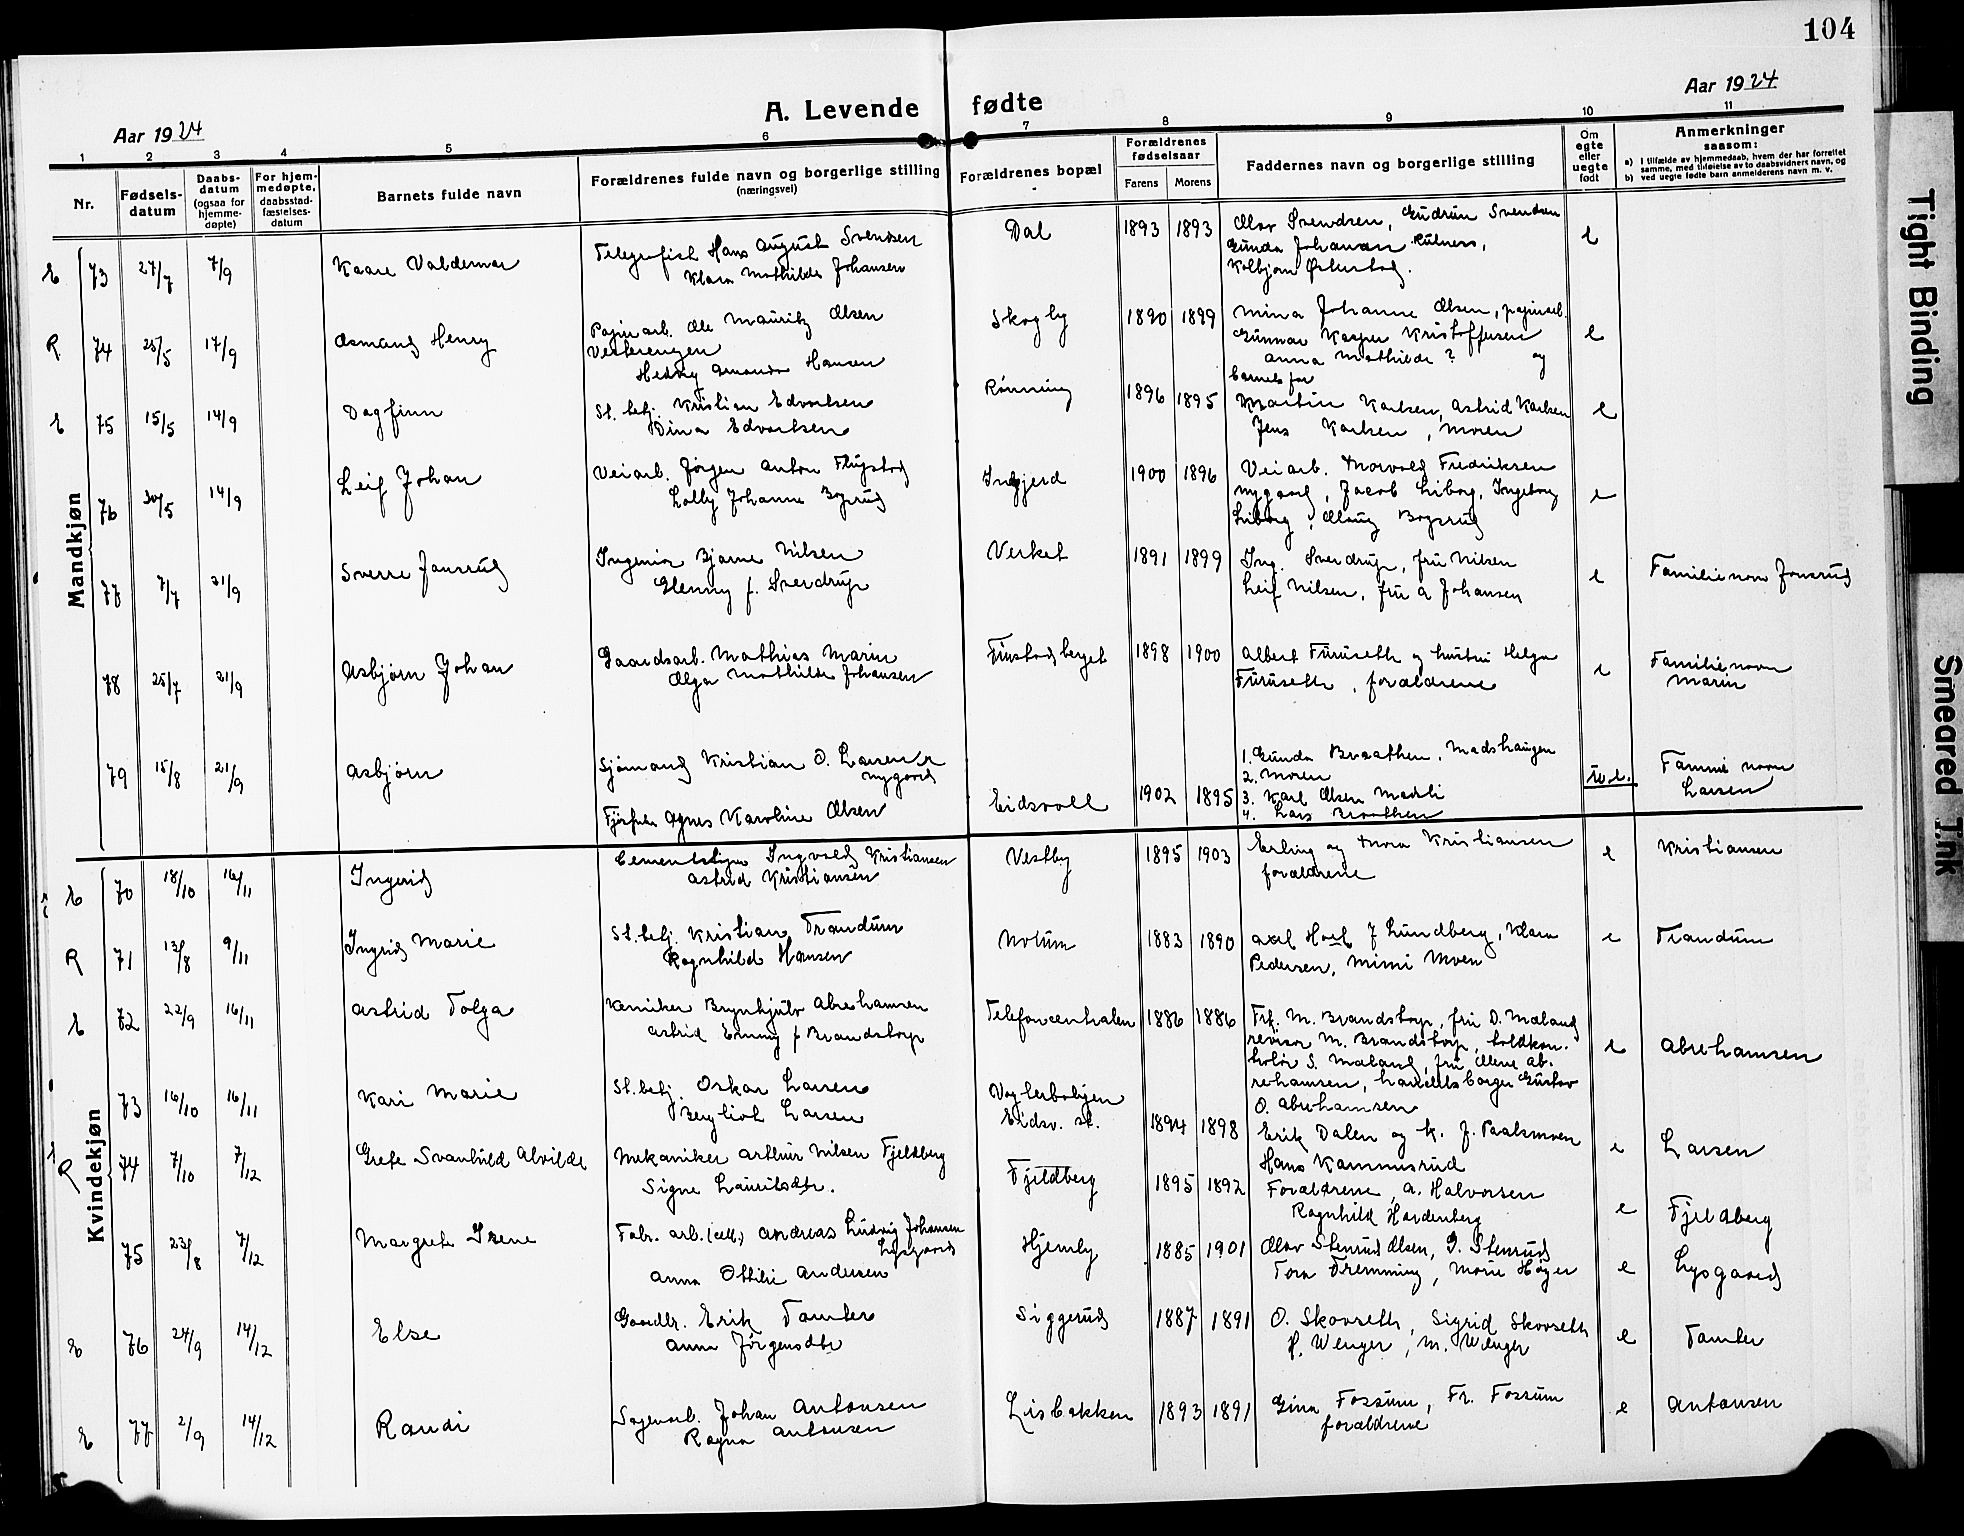 104
Aar 1924
A. Levende fødte
Aar 1924
1 2 3 4 5 6 7 8 9 10 11
Nr.
Fødsels-
datum
Daabs-
datum
(ogsaa for
hjemme-
døpte)
For hjem-
medøpte,
daabsstad-
fæstelses-
datum
Barnets fulde navn
Forældrenes fulde navn og borgerlige stilling
(næringsvei)
Forældrenes bopæl
Forældrenes
fødselsaar
Farens Morens
Faddernes navn og borgerlige stilling
Om
egte
eller
uegte
født
Anmerkninger
saasom:
a) I tilfælde av hjemmedaab, hvem der har forrettet
samme, med tilføielse av to daabsvidners navn, og
b) ved uegte fødte barn anmelderens navn m. v.
Mandkjøn
E 73 27/7 7/9 Kaare Valdemar
Telegrafist Hans August Svensen
Klara Mathilde Johansen
Dal 1893 1893
Olav Svendsen, Gudrun Svendsen
Gunda Johansen
Kolbjørn
e
R 74 25/5 17/9 Asmund Henry
Papirarb. Ole Mauritz Olsen
Vesterengen
Hedvig Amanda Hansen
Skogly 1890 1899
Mina Johanne Olsen, papirarb.
Gunnar Kasper Kristoffersen
Anna Mathilde ? og
barnets far
e
E 75 15/5 14/9 Dagfinn
St. betj. Kristian Edvardsen
Dina Edvardsen
Rønning 1896 1895
Martin Karlsen, Astrid Karlsen
Jens Karlsen, moren
e
76 30/5 14/9 Leif Johan
Veiarb. Jørgen Anton Flugstad
Lolly Johanne
1900 1896
Veiarb. Thorvald Fredriksen
Nygaard, Jacob Liborg, Ingeborg
Liborg,
e
77 7/7 21/9 Sverre Jansrud
Ingeniør Bjarne Nilsen
Glenny f. Sverdrup
Verket 1891 1899
Ing. Sverdrup, fru Nilsen
Leif Nilsen, fru A Johansen
e
Familienavn Jansrud
78 25/7 21/9 Asbjørn Johan
Gaardsarb. Mathias Marin
Olga Mathilde Johansen
Finstadberget 1898 1900
Albert Furuseth og hustru Helga
Furuseth, forældrene
e
Familienavn
Marin
79 15/8 21/9 Asbjørn
Sjømand Kristian O. Larsen
Nygaard
Agnes Karoline Olsen
Eidsvoll 1902 1895
1. Gunda Braathen, Madshaugen
2. Moren
3. Karl Olsen Madsli
4. Lars Braathen
u.e.
Familienavn
Larsen
Kvindekjøn
E 70 18/10 16/11 Ingerid
Ingvald Kristiansen
Astrid Kristiansen
Vestby 1895 1903
Erling og Thora Kristiansen
forældrene
e
Kristiansen
R 71 13/8 9/11 Ingrid Marie
St. betj. Kristian Trandum
Ragnhild Hansen
Molum 1883 1890
Axel J Lundberg, Klara
Pedersen, Mimi Moen
e
Trandum
E 72 22/9 16/11 Astrid Tolga
Kemiker Brynhjulv Abrahamsen
Astrid Emmy f Brandstorp
Telefoncentralen 1886 1886
Frk. M. Brandstorp, fru D. Mæland
revisor M. Brandstorp, toldkon-
trolør S. Mæland, fru Ab-
rahamsen, Gustav
O. Abrahamsen
e
Abrahamsen
73 16/10 16/11 Kari Marie
St. betj. Oskar Larsen
Bergliot Larsen
Eidsv. st. 1894 1898
Erik Dalen og K. J. Paalsmoen
Hans Kammerud
e
Larsen
R 74 7/10 7/12 Grete Svanhild Alvilde
Mekaniker Arthur Nilsen Fjeldberg
Signe Lauritsdtr.
Fjeldberg 1895 1892
Forældrene, A. Halvorsen
Ragnhild Hardenberg
e
Fjeldberg
75 23/8 7/12 Margrete Irene
Fabr. arb. (cell.) Andreas Ludvig Johansen
Lysgaard
Anna Ottilie Andersen
Hjemly 1885 1901
Olav Stenrud Olsen, G. Stenrud
Tora Fremming, Marie Høyer
e
Lysgaard
E 76 24/9 14/12 Else
Gaardbr. Erik Tamler
Anna Jørgensdtr
Siggerud 1887 1891
O. Skovseth, Sigrid Skovseth
H. Wenger, M. Wenger
e
Tamler
E 77 2/9 14/12 Randi
Sagevarb. Johan Antonsen
Ragna Antonsen
Lisbakken 1893 1891
Gina Fossum, Fr. Fossum
forældrene
e
Antonsen
Tight Binding
Smeared Ink